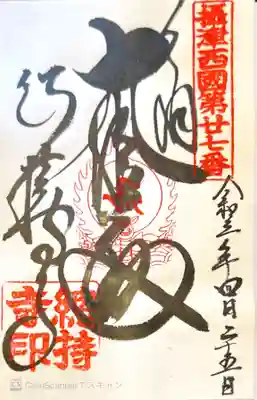 攝津西國第廿七番
奉拝
大悲殿
総持寺
令和三年四月二十五日
總持
寺印
CamScanner でスキャン